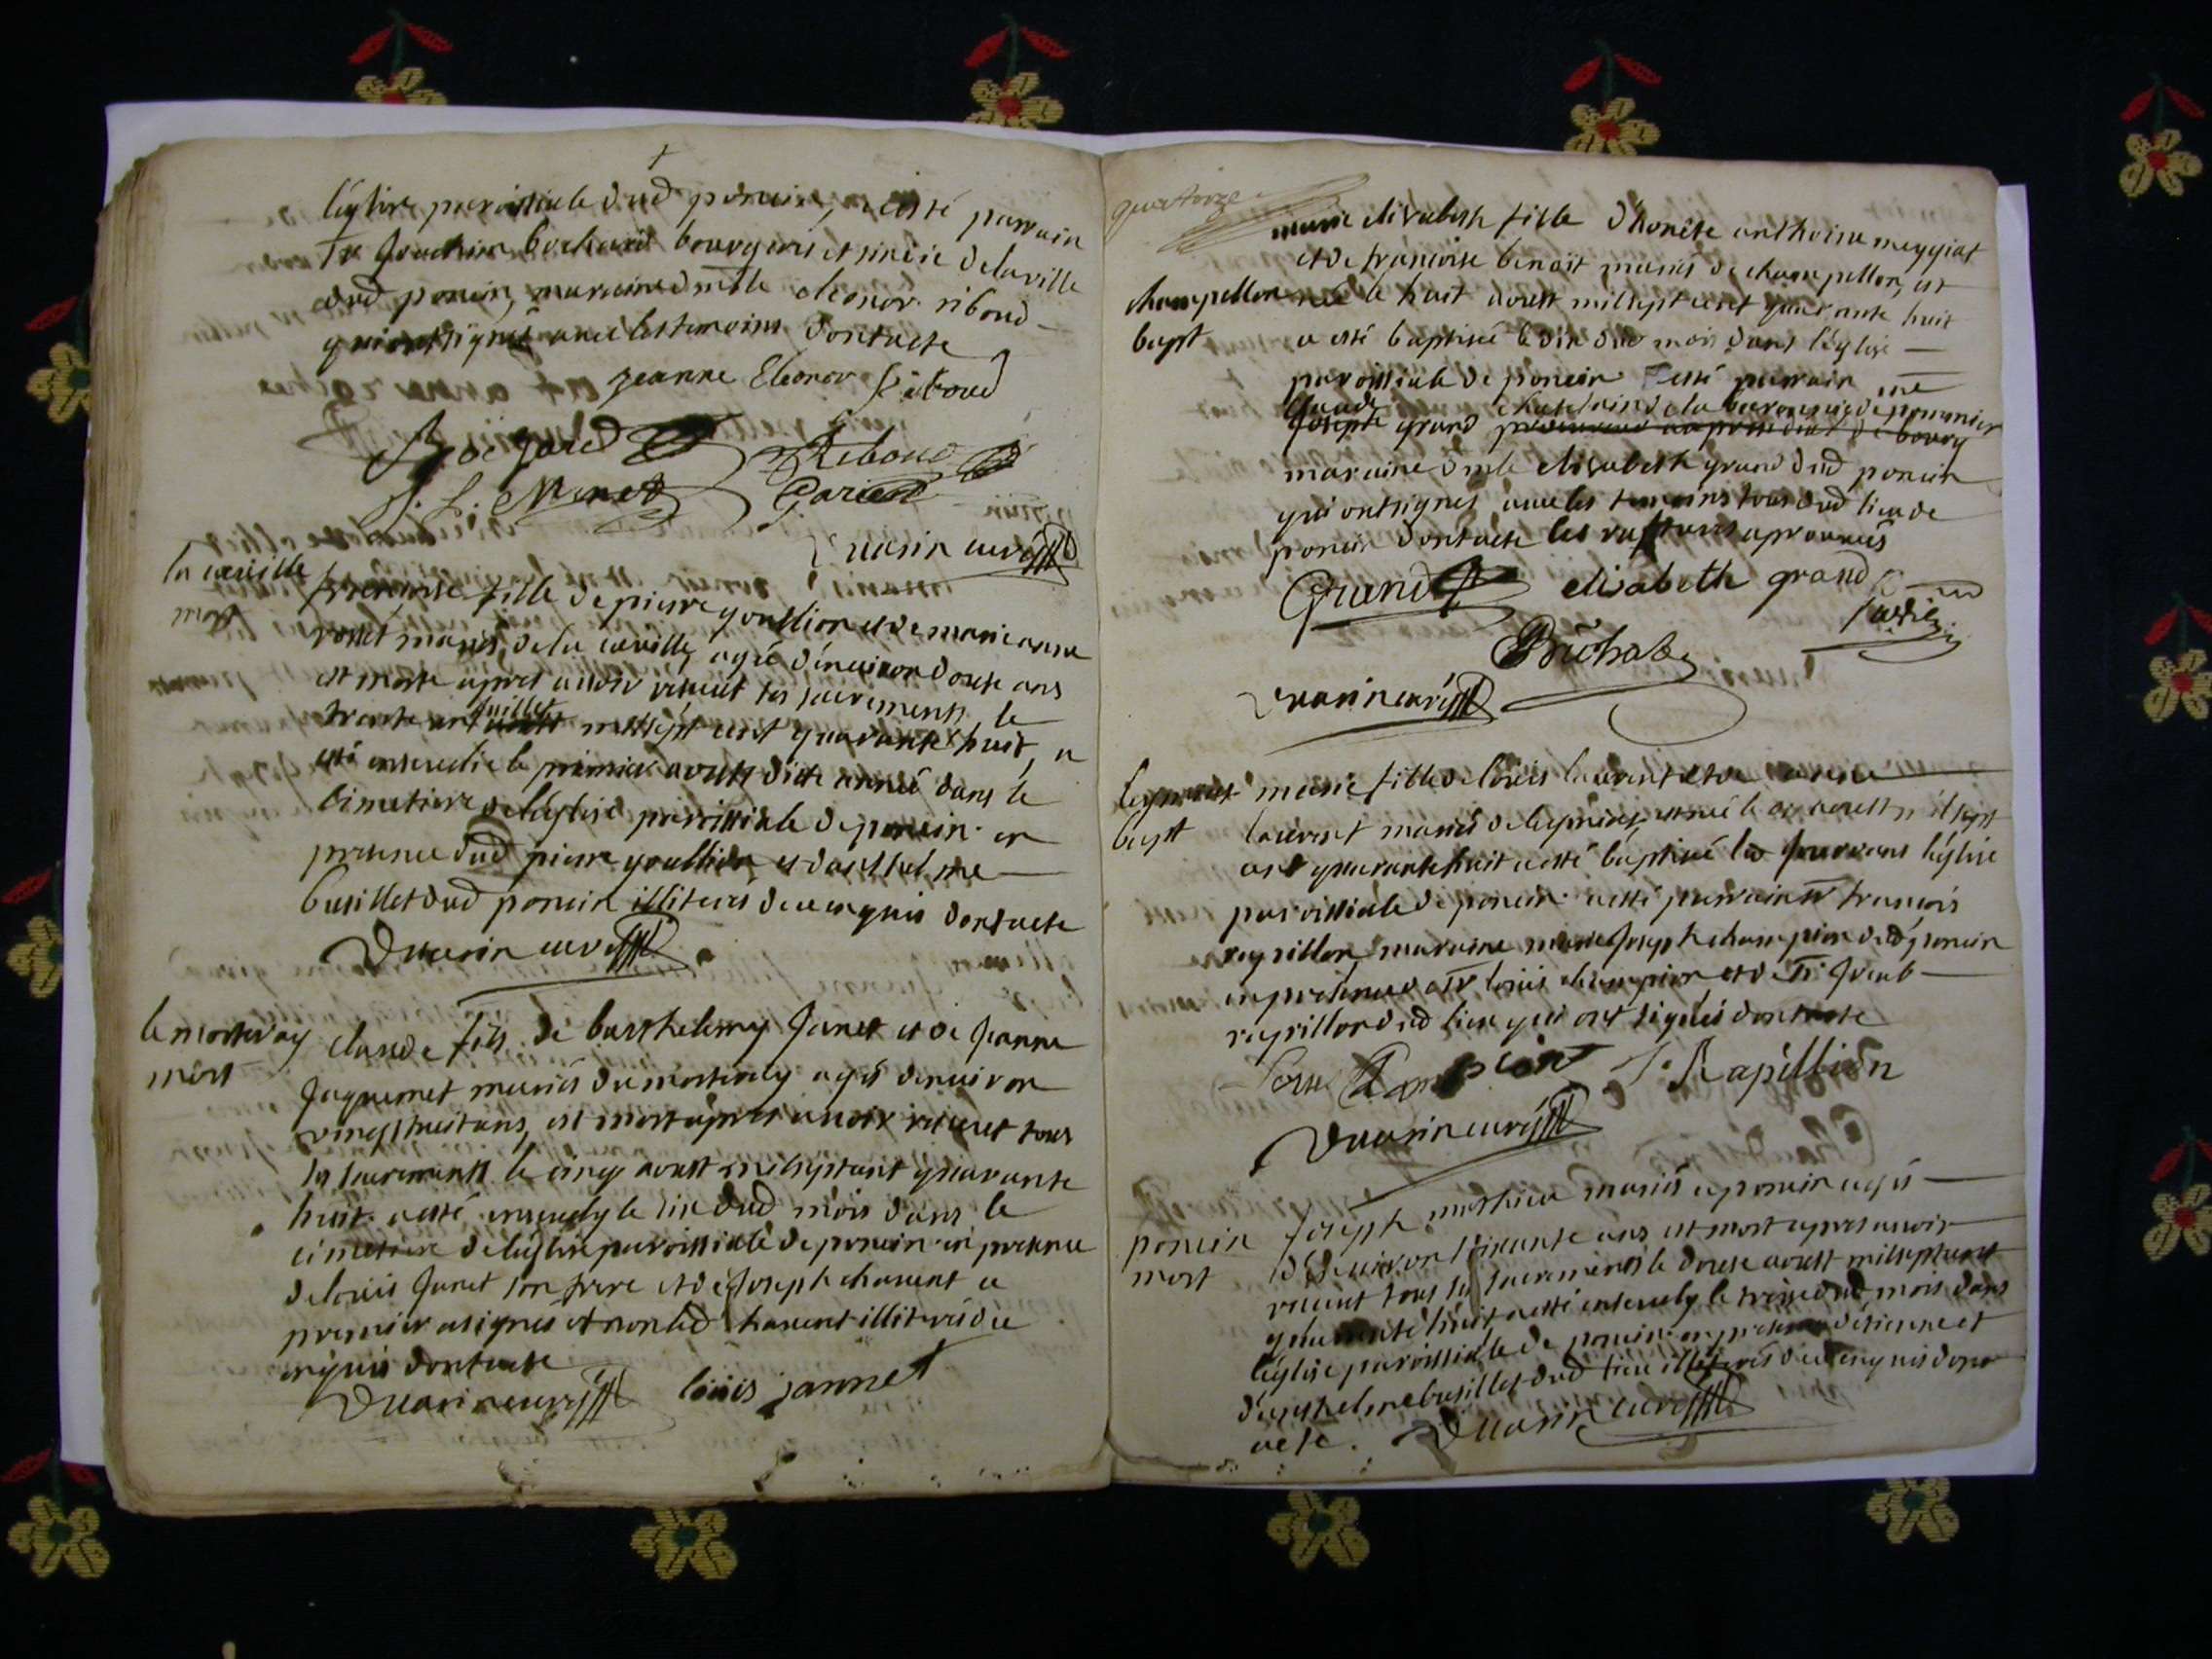 l'eglise parroissiale dud poncin, a esté parrain
sr Joachim bochard bourgeois et sindic de la ville
dud poncin, maraine dmlle eleonor riboud
qui ont signés avec les temoins dont acte
jeanne Eleonor riboud
Bochard Riboud
J. L. Monet Parient
Duarin curé
la cueille
mort
francoise fille de pierre goullion et de marie anne
rosset mariés de la cueille, agée d'environ douse ans
est morte apres avoir receut les sacrements, le
trente un juillet mil sept cent quarante huit, a
esté ensevelie le premier aoust dicte année dans le
cimetiere de l'eglise parroissiale de poncin en
presence dud pierre goullion et d'anthelme
busillet dud poncin illiterés de ce enquis dont acte
Duarin curé
le mortaray
mort
claude fils de barthelemy Janet et de Jeanne
Jaquemet mariés du mortaray agés d'environ
vingt huit ans, est mort apres avoir receut tous
les sacrements le cinq aoust mil sept cent quarante
huit a esté ensevely le six dud mois dans le
cimetiere de l'eglise parroissiale de poncin en presence
de louis Janet son frere et de Joseph chanent ce
premier a signés et non led chanent illiterés de ce
enquis dont acte
Duarin curé louis jannet
quatorze
marie elisabeth fille d'honête anthoine meygiat
et de francoise benoit mariés de champellon, est
champellon
née le huit aoust mil sept cent quarante huit
bapt
a esté baptisée le dix dud mois dans l'eglise
parroissiale de poncin a esté parrain me
Claude chatelain de la baronnie de
Joseph grand procureur au presidial de bourg
maraine dmlle elisabeth grand dud poncin
qui ont signés avec les temoins tous dud lieu de
poncin dont acte les ratures aprouvées
Grand elisabeth grand
Duarin curé
bapt
marie fille de louis laurent et de anne
laurent mariés de est née le aoust mil sept
cent quarante huit a esté baptisée le Jour dans l'eglise
parroissiale de poncin a esté parrain sr francois
rapillon, maraine marie Joseph champion dud poncin
en presence de sr louis champion et de sr Jacob
rapillon dud lieu qui ont signés dont acte
Louis Champion J. Rapillion
Duarin curé
poncin
mort
Joseph mathieu mariés a poncin agés
d'environ soixante ans est mort apres avoir
receut tous les sacrements le douse aoust mil sept cent
quarante huit a esté ensevely le treise dud mois dans
l'eglise parroissiale de poncin en presence d'etienne et
d'anthelme busillet dud lieu illiterés de ce enquis dont
acte. Duarin curé